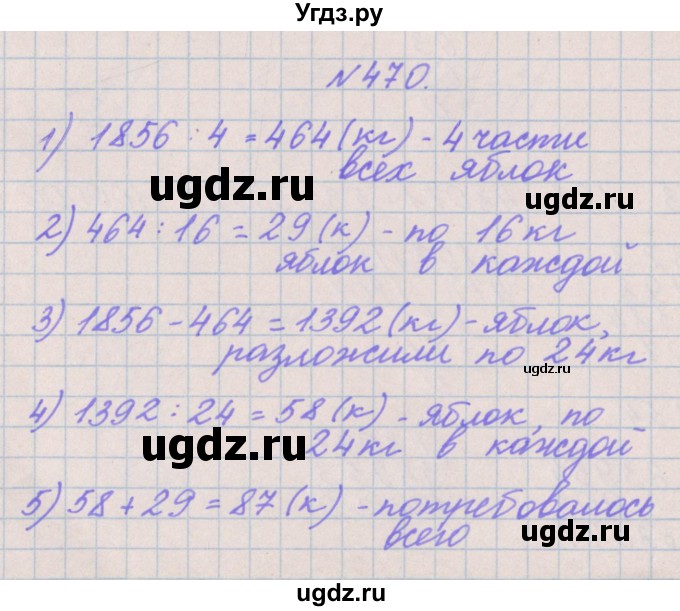 Угдз.ру
№470.
1) 1856 : 4 = 464 (кг) - 4 части
всех яблок
ugdz.ru
2) 464 : 16 = 29 (к) - по 16 кг
яблок в каждой
ugdz.ru
3) 1856 - 464 = 1392 (кг) - яблок,
разложили по 24 кг
ugdz.ru
4) 1392 : 24 = 58 (к) - яблок, по
24 кг в каждой
ugdz.ru
5) 58 + 29 = 87 (к) - потребовалось
всего
ugdz.ru
ugdz.ru